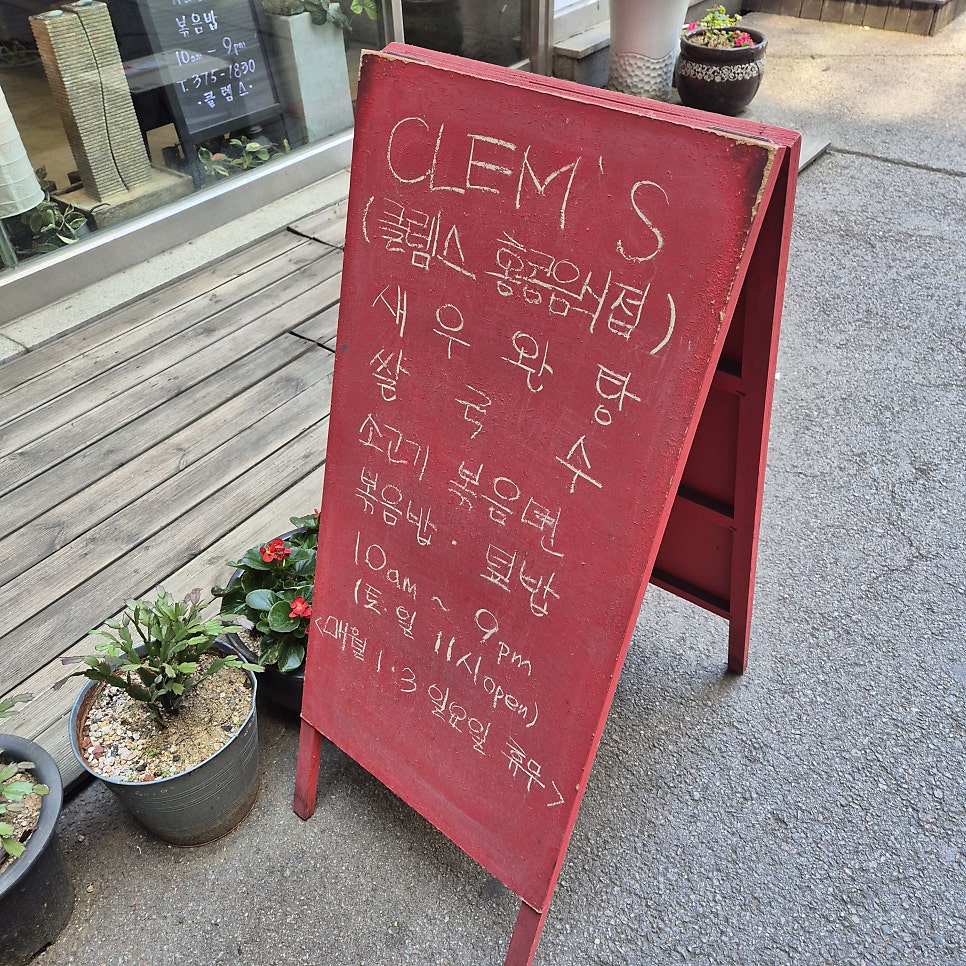 볶음밥
10am - 9pm
T. 375-1830
·클렘스·
CLEM'S
(클렘스 홍콩음식점)
새우완탕
쌀국수
소고기 볶음면
볶음밥 · 덮밥
10am ~ 9pm
(토·일 11시open)
<매월 1·3 일요일 휴무>